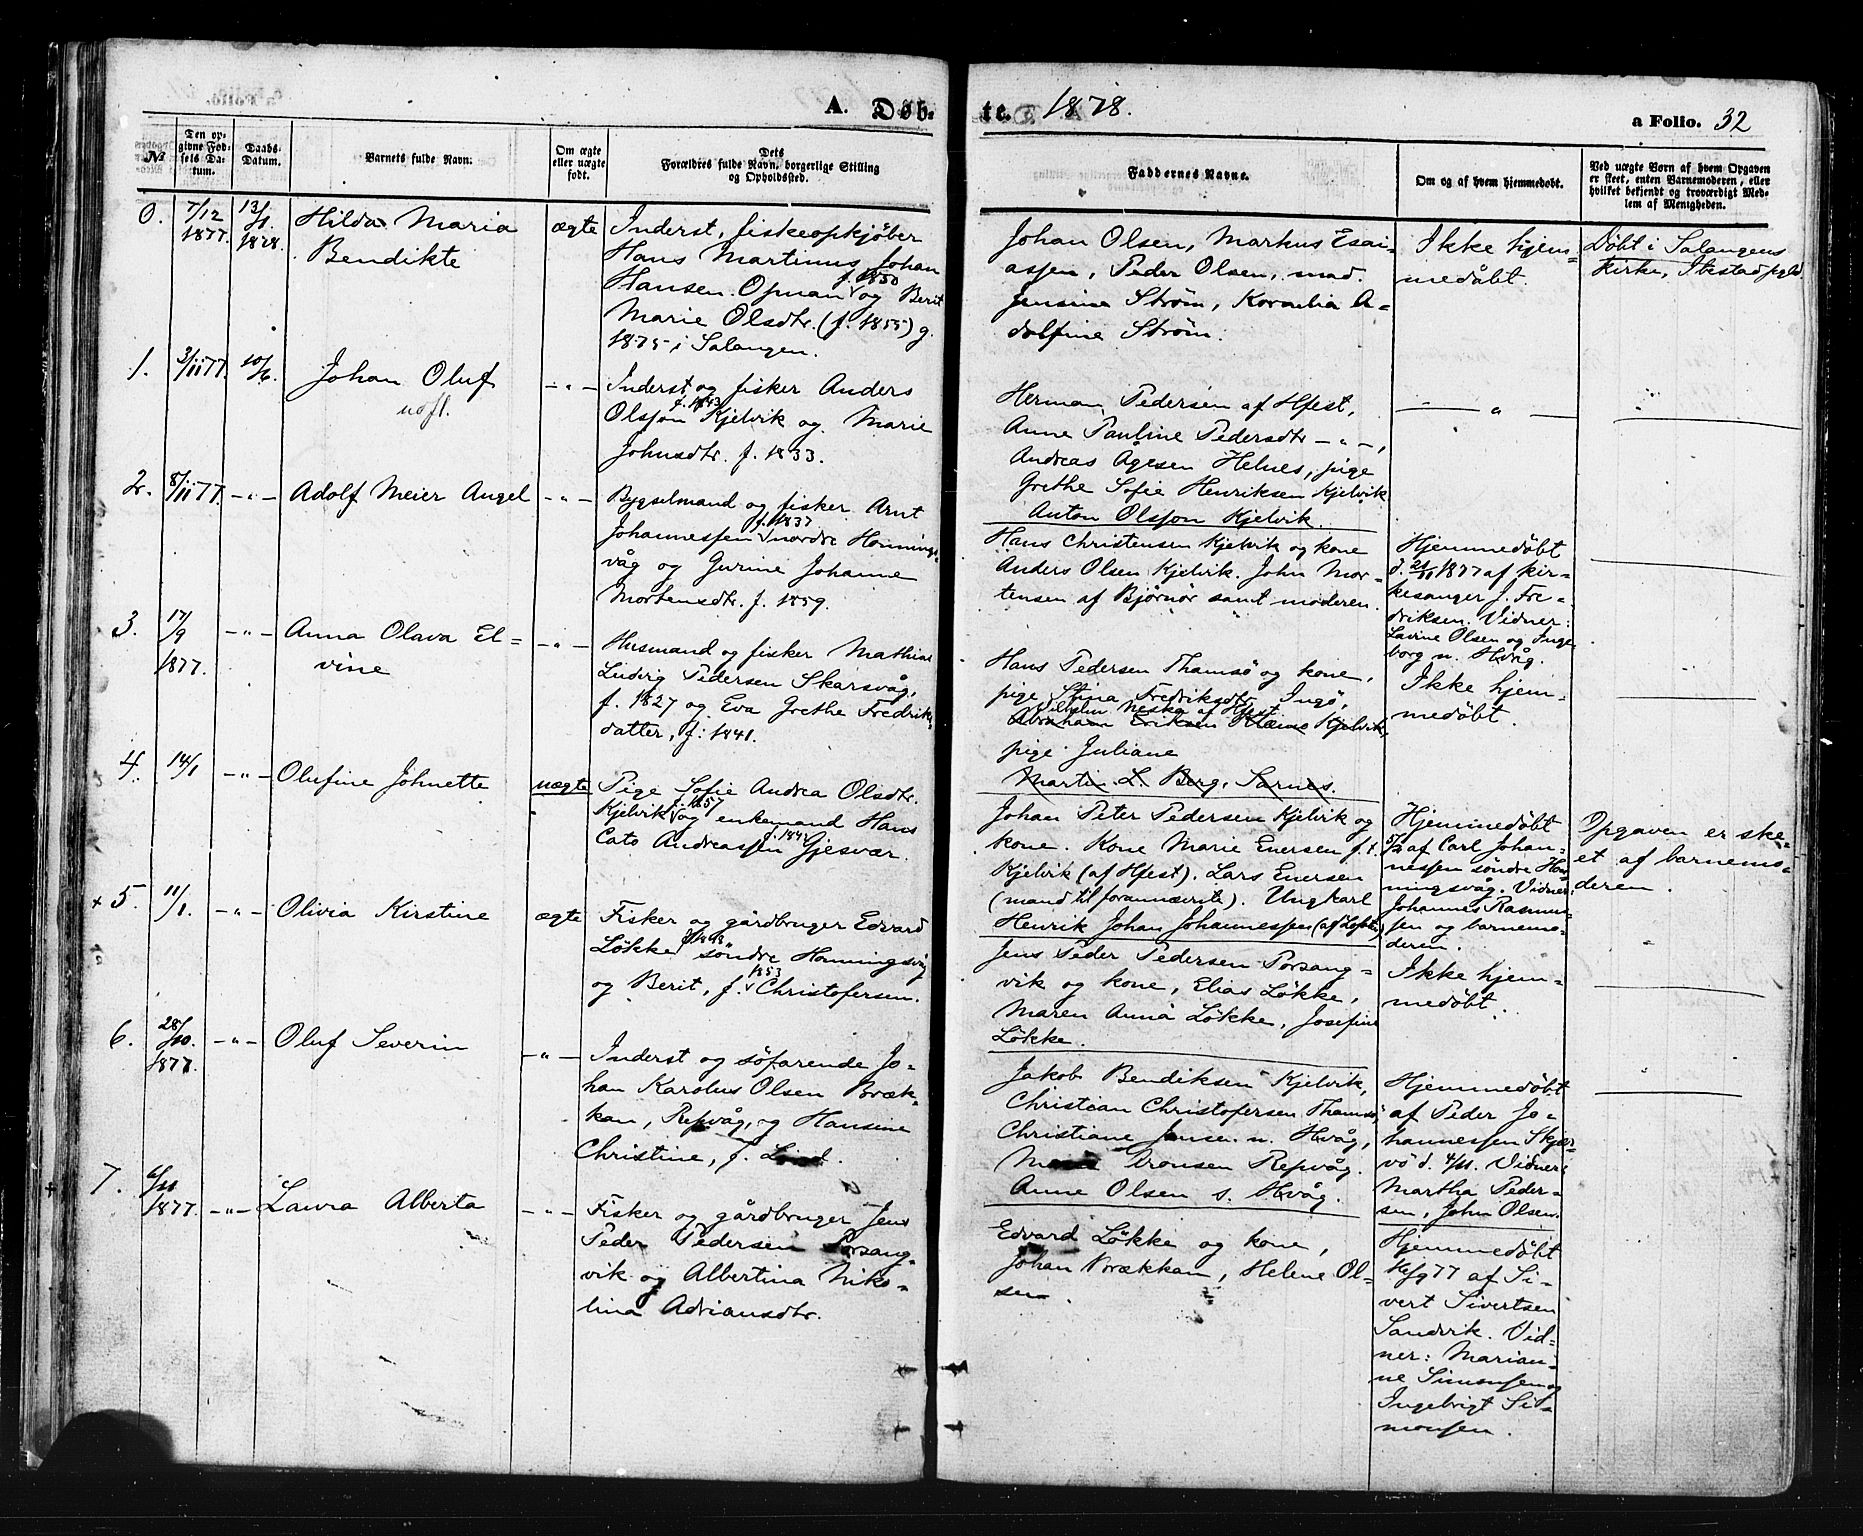 A. Døb-
te. 1878.
a Folio. 32
№
Den op-
givne Fød-
sels Da-
tum.
Daabs-
Datum.
Barnets fulde Navn.
Om ægte
eller uægte
født.
Dets
Forældres fulde Navn, borgerlige Stilling
og Opholdssted.
Faddernes Navne.
Om og af hvem hjemmedøbt.
Ved uægte Børn af hvem Opgaven
er skeet, enten Barnemoderen, eller
hvilket bekjendt og troværdigt Med-
lem af Menigheden.
0.
7/12
1877.
13/1.
1878.
Hilda Maria
Bendikte
ægte
Inderst, fiskeopkjøber
Hans Martinus Johan
f. 1850
Hansen Opman og Berit
Marie Olsdtr. (f. 1855) g.
1875 i Salangen.
Johan Olsen, Markus Esai-
assen, Peder Olsen, mad.
Jensine Strøm, Kornelia A-
dolfine Strøm.
Ikke hjem-
medøbt.
Døbt i Salangens
kirke, Ibestad pgld
1.
3/11 77.
10/6.
Johan Oluf
— " —
Inderst og fisker Anders
f. 1843
Olsson Kjelvik og Marie
Johnsdtr. f. 1833.
Herman Pedersen af Hfest,
Anne Pauline Pedersdtr — " —,
Andreas Ågesen Helnes, pige
Grethe Sofie Henriksen Kjelvik
Anton Olsson Kjelvik.
— " —
2.
8/11 77.
— " —
Adolf Meier Angel
— " —
Bygselmand og fisker Arnt
f. 1837
Johannessen nordre Honnings-
våg og Gurine Johanne
Mortensdtr. f. 1859.
Hans Christensen Kjelvik og kone
Anders Olsen Kjelvik. John Mor-
tensen af Bjørnør samt moderen.
Hjemmedøbt
d. 21/11 1877 af kir-
kesanger J. Fre-
driksen. Vidner:
Lavine Olsen og Inge
borg n. Hvåg.
3.
17/9
1877.
— " —
Anna Olava El-
vine
— " —
Husmand og fisker Mathias
Ludvig Pedersen Skarsvåg,
f. 1827 og Eva Grethe Fredriks-
datter, f. 1841.
Hans Pedersen Thamsø og kone,
pige Stina Fredriksdtr Ingø,
Abraham Eriksen Kjelvik,
pige Juliane
Martin L. Berg, Sarnes.
Ikke hjem-
medøbt.
4.
14/1
— " —
Olufine Johnette
uægte
Pige Sofie Andrea Olsdtr.
f. 1857
Kjelvik og enkemand Hans
Cato Andreassen Gjesvær.
Johan Peter Pedersen Kjelvik og
kone. Kone Marie Enersen f. t.
Kjelvik (af Hfest). Lars Enersen
(mand til forannævnte). Ungkarl
Henrik Johan Johannessen (af Lofoten)
Hjemmedøbt
5/2 af Carl Johan-
nessen søndre Hon-
ningsvåg. Vidner:
Johannes Rasmus-
sen og barnemo-
deren.
Opgaven er ske-
et af barnemo-
deren.
× 5.
11/1.
— " —
Olivia Kirstine
ægte
Fisker og gårdbruger Edvard
Løkke søndre Honningsvåg
1853
og Berit, f. Christofersen.
Jens Peder Pedersen Porsang-
vik og kone, Elias Løkke,
Maren Anna Løkke, Josefine
Løkke.
Ikke hjem-
medøbt.
6.
28/10.
1877.
— " —
Oluf Severin
— " —
Inderst og søfarende Jo-
han Karolus Olsen Bræk-
kan, Repvåg, og Hansine
Christine, f. Lind.
Jakob Bendiksen Kjelvik,
Christian Christofersen Thamsø,
Christiane Jensen n. Hvåg,
Aronsen Repvåg.
Anne Olsen s. Hvåg.
Hjemmedøbt
af Peder Jo-
hannessen Skjær-
vø d. 4/11. Vidner:
Martha Peder-
sen, John Olsen.
7.
1877.
— " —
Laura Alberta
— " —
Fisker og gårdbruger Jens
Peder Pedersen Porsang-
vik og Albertina Niko-
lina Adriansdtr.
Edvard Løkke og kone,
Johan Brækkan, Helene Ol-
sen.
Hjemmedøbt
77 af Si-
vert Sivertsen
Sandvik. Vid-
ner: Marian-
ne Simonsen og
Ingebrigt Si-
monsen.